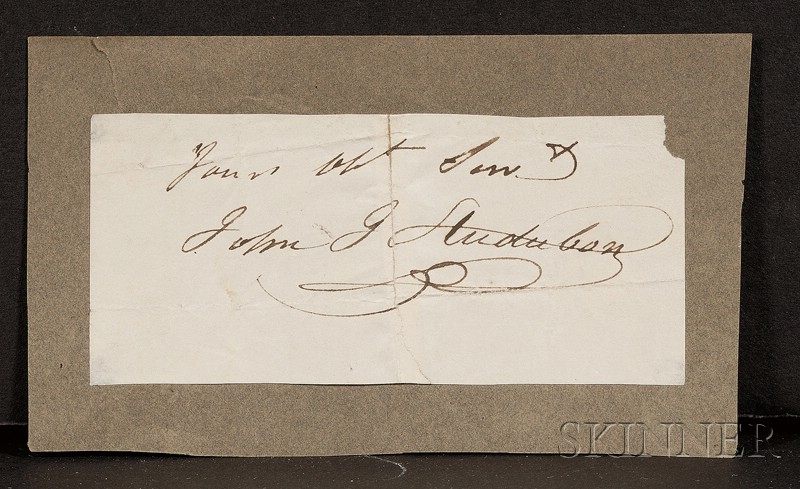 Yours Obt Servt
John J Audubon
SKINNER